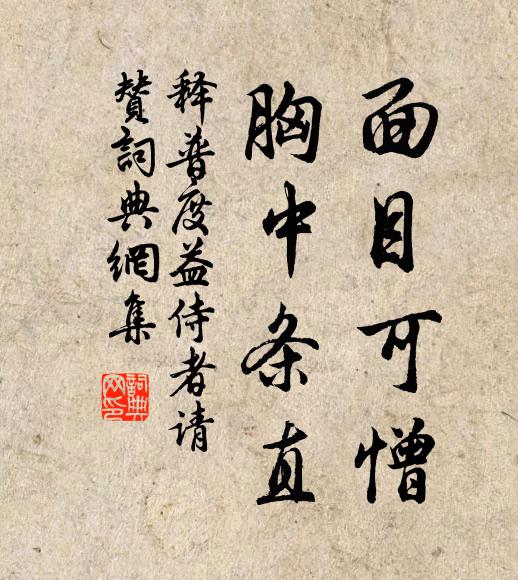 面目可憎
胸中条直
释普度益侍者请
赞詞典網集
詞典
网印